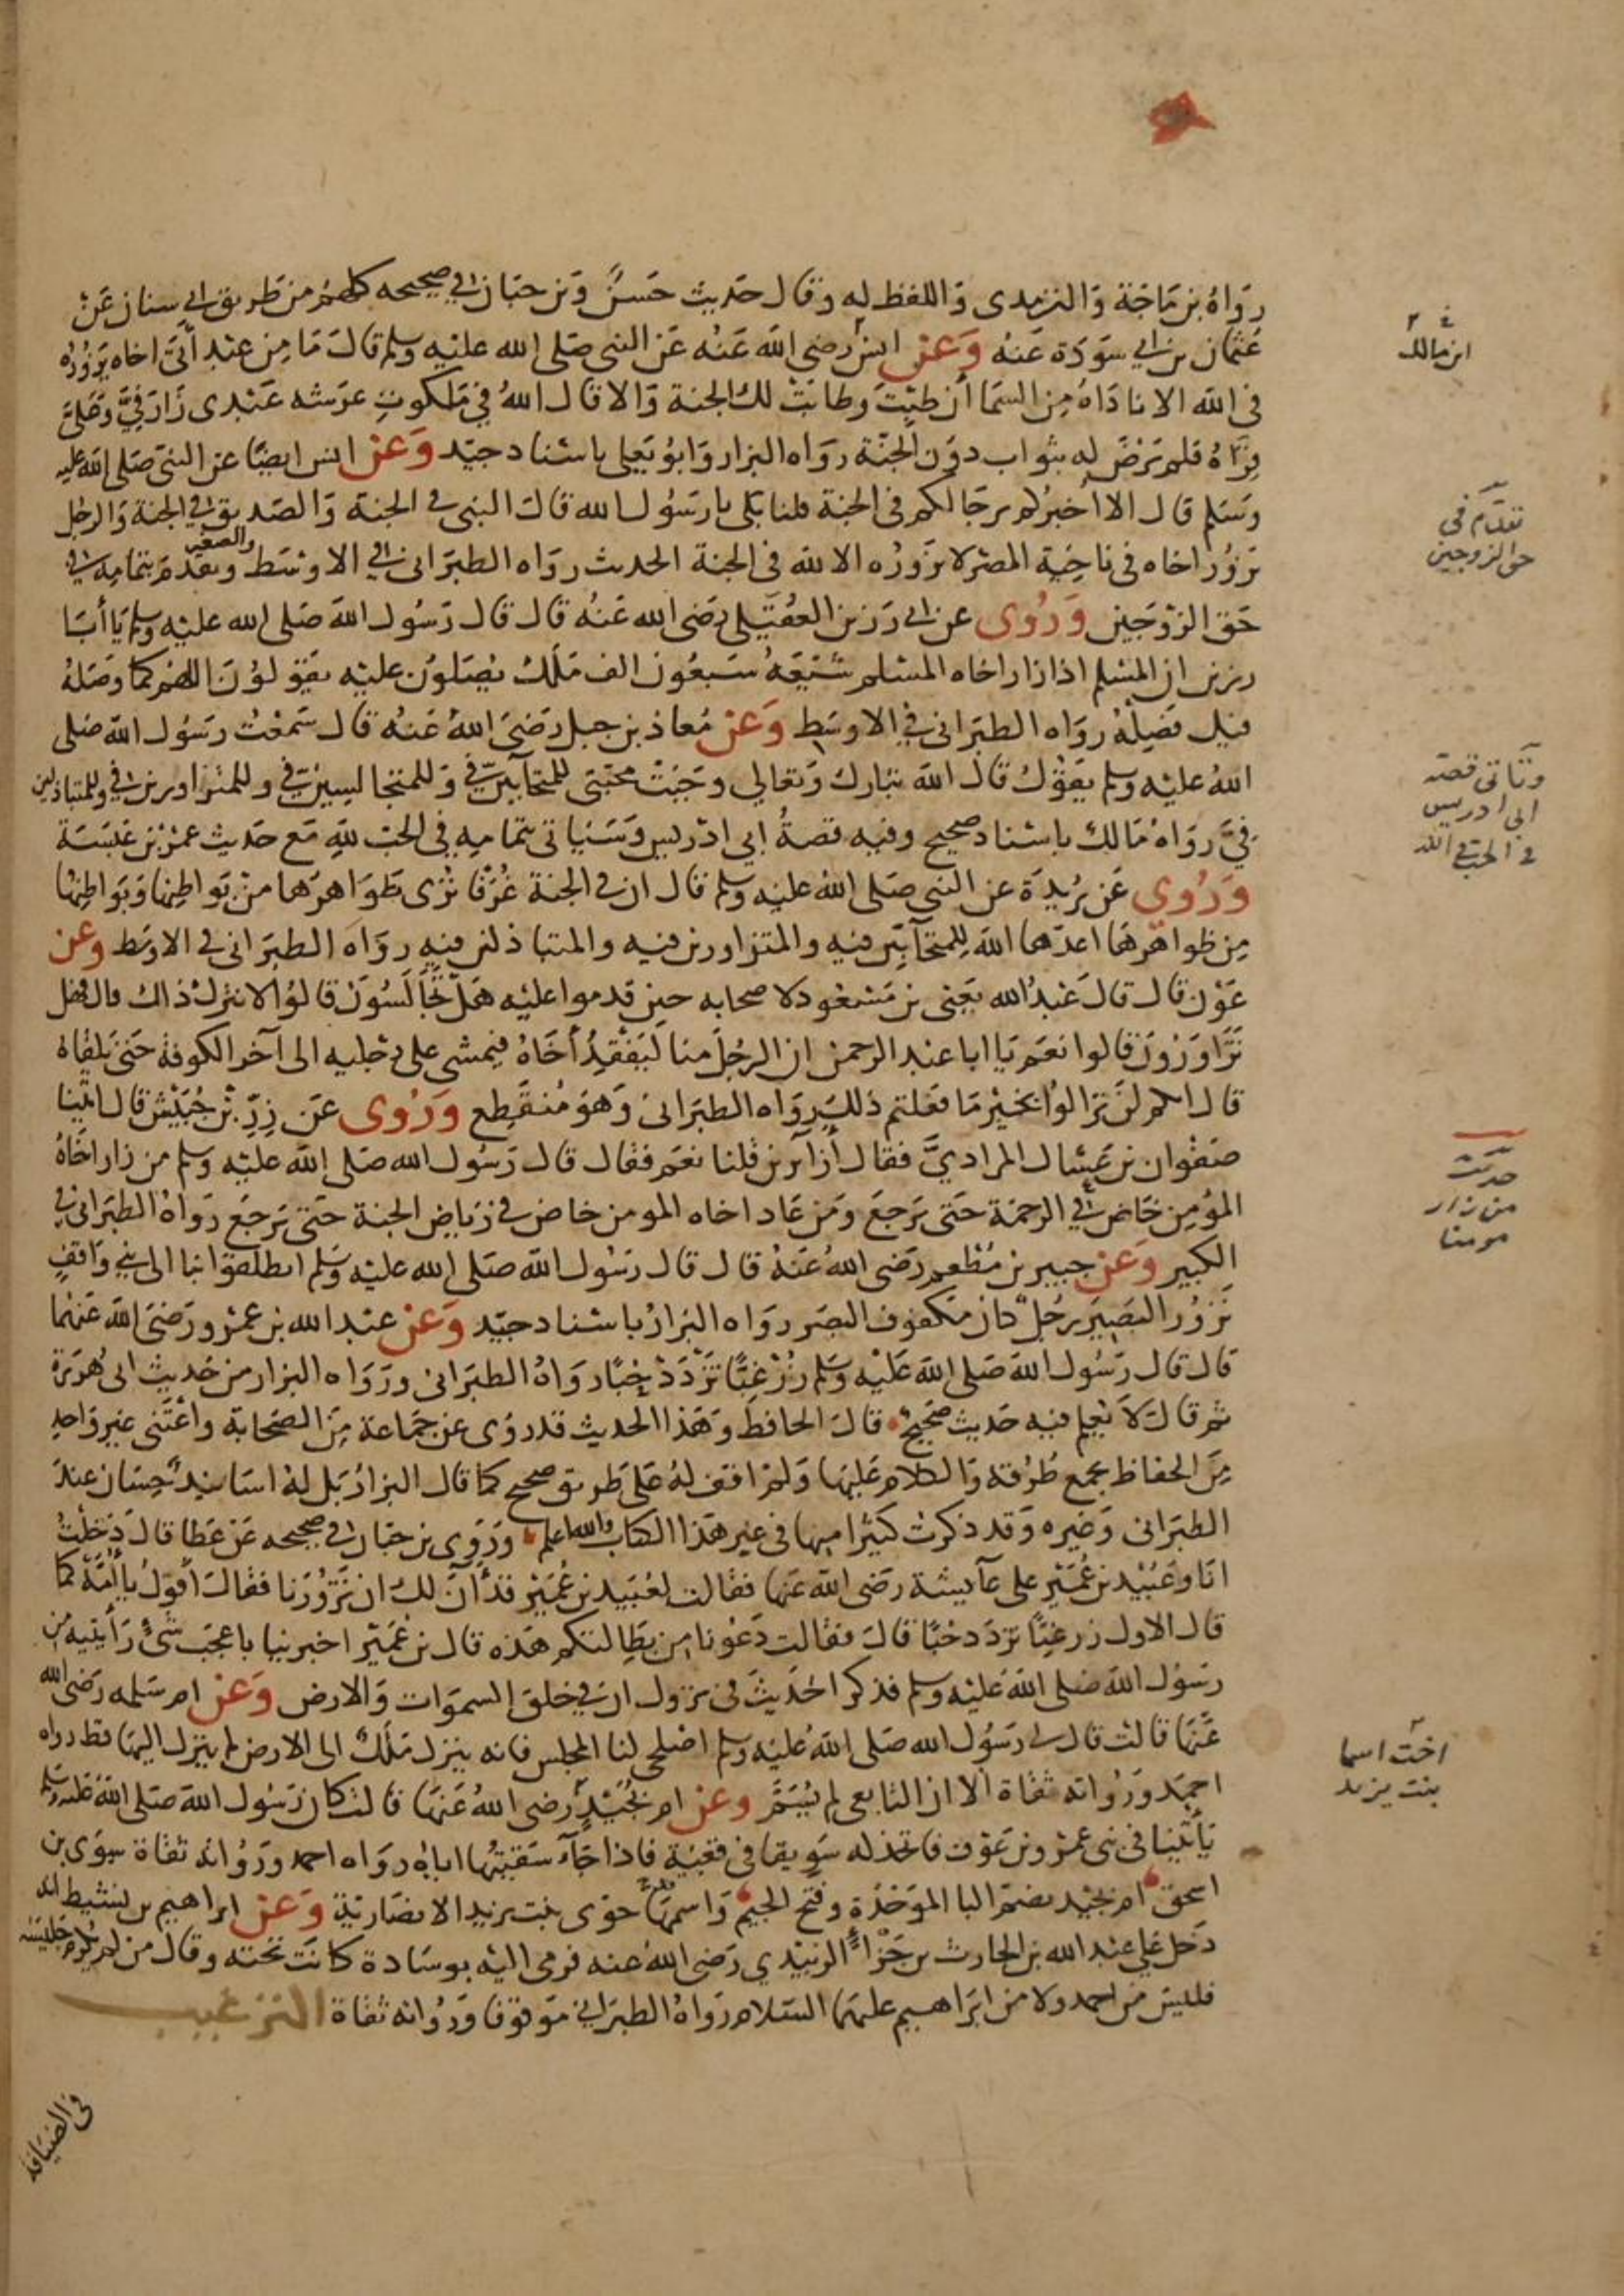 رواه بن ماجة والترمذى واللفظ له وقال حديث حسن وبن حبان في صحيحه كلهم من طريق ابي سنان عن
عثمان بن ابي سودة عنه وعن انس رضي الله عنه عن النبي صلى الله عليه وسلم قال ما من عبد أتى اخاه يزوره
في الله الا ناداه من السما أن طبت وطابت لك الجنة والا قال الله في ملكوت عرشه عبدى زار فيَّ وعليَّ
قراه فلم يرض له بثواب دون الجنة رواه البزار وابو يعلى باسناد جيد وعن انس ايضا عن النبي صلى الله عليه
وسلم قال الا اخبركم برجالكم في الجنة قلنا بلى يا رسول الله قال النبي في الجنة والصديق في الجنة والرجل
يزور اخاه في ناحية المصر لا يزوره الا لله في الجنة الحديث رواه الطبراني في الاوسط والصغير وتقدم بتمامه في
حق الزوجين وروى عن ابي رزين العقيلي رضي الله عنه قال قال رسول الله صلى الله عليه وسلم يا أبا
رزين ان المسلم اذا زار اخاه المسلم شيعه سبعون الف ملك يصلون عليه يقولون اللهم كما وصله
فيك فصله رواه الطبراني في الاوسط وعن معاذ بن جبل رضي الله عنه قال سمعت رسول الله صلى
الله عليه وسلم يقول قال الله تبارك وتعالى وجبت محبتى للمتحابين في وللمتجالسين في وللمتزاورين في وللمتباذلين
فيّ رواه مالك باسناد صحيح وفيه قصة ابي ادريس وسياتي بتمامه في الحب لله مع حديث عمرو بن عبسة
وروى عن بريدة عن النبي صلى الله عليه وسلم قال ان في الجنة غرفا ترى ظواهرها من بواطنها وبواطنها
من ظواهرها اعدها الله للمتحابين فيه والمتزاورين فيه والمتباذلين فيه رواه الطبراني في الاوسط وعن
عون قال قال عبد الله يعني بن مسعود لاصحابه حين قدموا عليه هل تجالسون قالوا لا نترك ذاك قال فهل
تزاورون قالوا نعم يا ابا عبد الرحمن ان الرجل منا ليفقد أخاه فيمشي على رجليه الى آخر الكوفة حتى يلقاه
قال انكم لن تزالوا بخير ما فعلتم ذلك رواه الطبراني وهو منقطع وروى عن زرّ بن حبيش قال اتينا
صفوان بن عسال المرادي فقال أزائرين قلنا نعم فقال قال رسول الله صلى الله عليه وسلم من زار اخاه
المؤمن خاض في الرحمة حتى يرجع ومن عاد اخاه المومن خاض في رياض الجنة حتى يرجع رواه الطبراني في
الكبير وعن جبير بن مطعم رضي الله عنه قال قال رسول الله صلى الله عليه وسلم انطلقوا بنا الى بني واقف
نزور البصير رجل كان مكفوف البصر رواه البزار باسناد جيد وعن عبد الله بن عمرو رضي الله عنهما
قال قال رسول الله صلى الله عليه وسلم زر غبّا تزدد حبّا رواه الطبراني ورواه البزار من حديث ابي هريرة
ثم قال لا نعلم فيه حديث صحيح قال الحافظ وهذا الحديث قد روى عن جماعة من الصحابة واعتنى غير واحد
من الحفاظ بجمع طرقه والكلام عليها ولم اقف له على طريق صحيح كما قال البزار بل له اسانيد حسان عند
الطبراني وغيره وقد ذكرت كثيرا منها في غير هذا الكتاب والله اعلم وروى بن حبان في صحيحه عن عطا قال دخلت
انا وعبيد بن عمير على عآيشة رضي الله عنها فقالت لعبيد بن عمير قد آن لك ان تزورنا فقال أقول يا أمّه كما
قال الاول زر غبّا تزدد حبّا قال فقالت دعونا من بطالتكم هذه قال بن عمير اخبرينا باعجب شئ رأيتيه من
رسول الله صلى الله عليه وسلم فذكر الحديث في نزول ان في خلق السموات والارض وعن ام سلمه رضي الله
عنها قالت قال لي رسول الله صلى الله عليه وسلم اصلحي لنا المجلس فانه ينزل ملك الى الارض لم ينزل اليها قط رواه
احمد ورواته ثقاة الا ان التابعي لم يسَمَّ وعن ام بجيد رضي الله عنها قالت كان رسول الله صلى الله عليه وسلم
يأتينا في بني عمرو بن عوف فاتخذ له سويقا في قعبة فاذا جآء سقيتها اياه رواه احمد ورواته ثقاة سوى بن
اسحق ام بجيد بضم البا الموحدة وفتح الجيم واسمها حوى بنت يزيد الانصارية وعن ابراهيم بن نشيط انه
دخل على عبد الله بن الحارث بن جزاء الزبيدي رضي الله عنه فرمى اليه بوسادة كانت تحته وقال من لم يكرم جليسه
فليس من احمد ولا من ابراهيم عليهما السلام رواه الطبراني موقوفا ورواته ثقاة الترغيب
في الضيافة
ابن مالك
تقدم في
حق الزوجين
وتاتي قصة
ابى ادريس
في الحب في الله
حديث
من زار
مومنا
اخت اسما
بنت يزيد